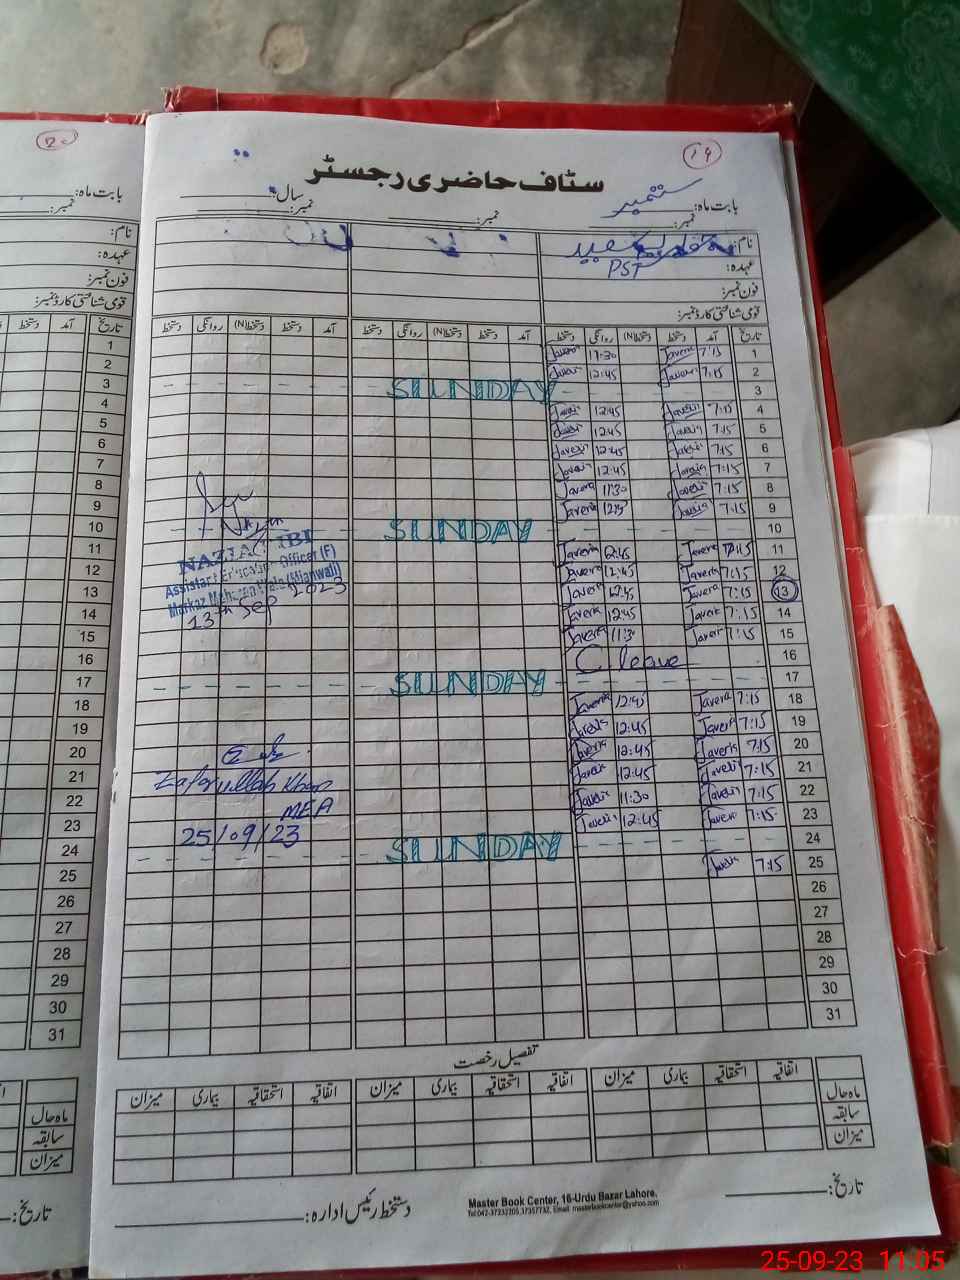 20
19
سٹاف حاضری رجسٹر
بابت ماہ: ستمبر
سال:
نمبر: نمبر: نمبر:
نام:
عہدہ: PST
فون نمبر:
قومی شناختی کارڈ نمبر:
تاریخ آمد دستخط دستخط(N) روانگی دستخط آمد دستخط دستخط(N) روانگی دستخط آمد دستخط دستخط(N) روانگی دستخط
1 7:15 Javeria 11:30 Javeria
2 7:15 Javeria 12:45 Javeria
3 SUNDAY
4 7:15 Javeria 12:45 Javeria
5 7:15 Javeria 12:45 Javeria
6 7:15 Javeria 12:45 Javeria
7 7:15 Javeria 12:45 Javeria
8 7:15 Javeria 11:30 Javeria
9 7:15 Javeria 12:45 Javeria
10 SUNDAY
11 7:15 Javeria 12:45 Javeria
12 7:15 Javeria 12:45 Javeria
13 7:15 Javeria 12:45 Javeria
14 7:15 Javeria 12:45 Javeria
15 7:15 Javeria 11:30 Javeria
16 C leave
17 SUNDAY
18 7:15 Javeria 12:45 Javeria
19 7:15 Javeria 12:45 Javeria
20 7:15 Javeria 12:45 Javeria
21 7:15 Javeria 12:45 Javeria
22 7:15 Javeria 11:30 Javeria
23 7:15 Javeria 12:45 Javeria
24 SUNDAY
25 7:15 Javeria
26
27
28
29
30
31
NAZIA BIBI
Assistant Education Officer (F)
Markaz (Mianwali)
13th Sep 2023
Zafarullah Khan
MEA
25/09/23
تفصیل رخصت
اتفاقیہ استحقاقیہ بیماری میزان اتفاقیہ استحقاقیہ بیماری میزان اتفاقیہ استحقاقیہ بیماری میزان
ماہ حال
سابقہ
میزان
تاریخ:
دستخط رئیس ادارہ:
Master Book Center, 16-Urdu Bazar Lahore.
Tel:042-37232205,37357732, Email: masterbookcenter@yahoo.com
بابت ماہ:
نمبر:
نام:
عہدہ:
فون نمبر:
قومی شناختی کارڈ نمبر:
تاریخ آمد دستخط
1
2
3
4
5
6
7
8
9
10
11
12
13
14
15
16
17
18
19
20
21
22
23
24
25
26
27
28
29
30
31
ماہ حال
سابقہ
میزان
تاریخ:
25-09-23 11:05